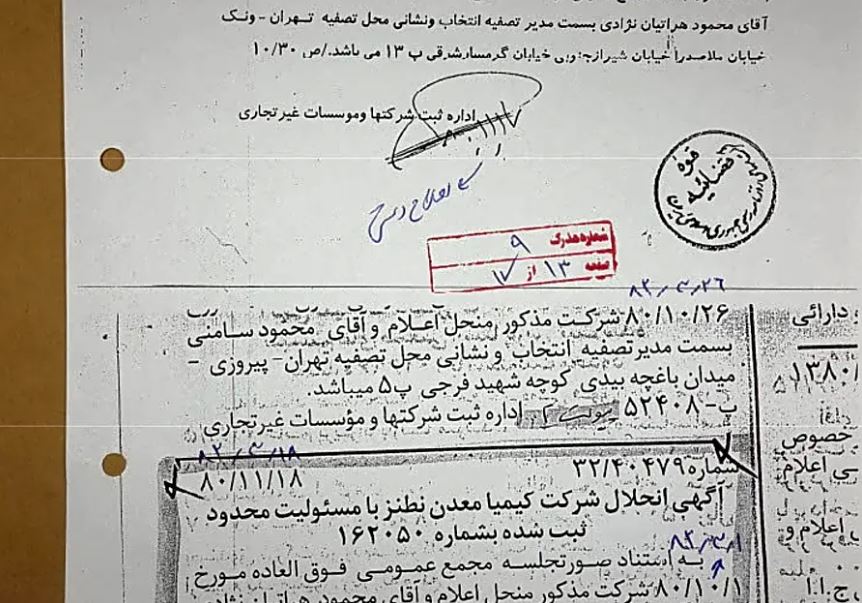 آقای محمود هراتیان نژادی بسمت مدیر تصفیه انتخاب ونشانی محل تصفیه تهران - ونک
خیابان ملاصدرا خیابان شیراز جنوبی خیابان گرمسارشرقی پ ۱۳ می باشد./ص ۱۰/۳۰
اداره ثبت شرکتها وموسسات غیرتجاری
قوه قضائیه
شماره مدرک ۹
صفحه ۱۳ از ۱۷
۸۰/۱۰/۲۶ شرکت مذکور منحل اعلام و آقای محمود سامنی
بسمت مدیرتصفیه انتخاب و نشانی محل تصفیه تهران- پیروزی -
میدان باغچه بیدی کوچه شهید فرجی پ۵ میباشد.
پ-۵۲۴۰۸ اداره ثبت شرکتها و مؤسسات غیرتجاری
شماره ۳۲/۴۰۴۷۹
۸۰/۱۱/۱۸
آگهی انحلال شرکت کیمیا معدن نطنز با مسئولیت محدود
ثبت شده بشماره ۱۶۲۰۵۰
به استناد صورتجلسه مجمع عمومی فوق العاده مورخ
۸۰/۱۰/۱ شرکت مذکور منحل اعلام و آقای محمود هراتیان نژادی
دارائی
۱۳۸۰/
خصوص
ی اعلام
اعلام و